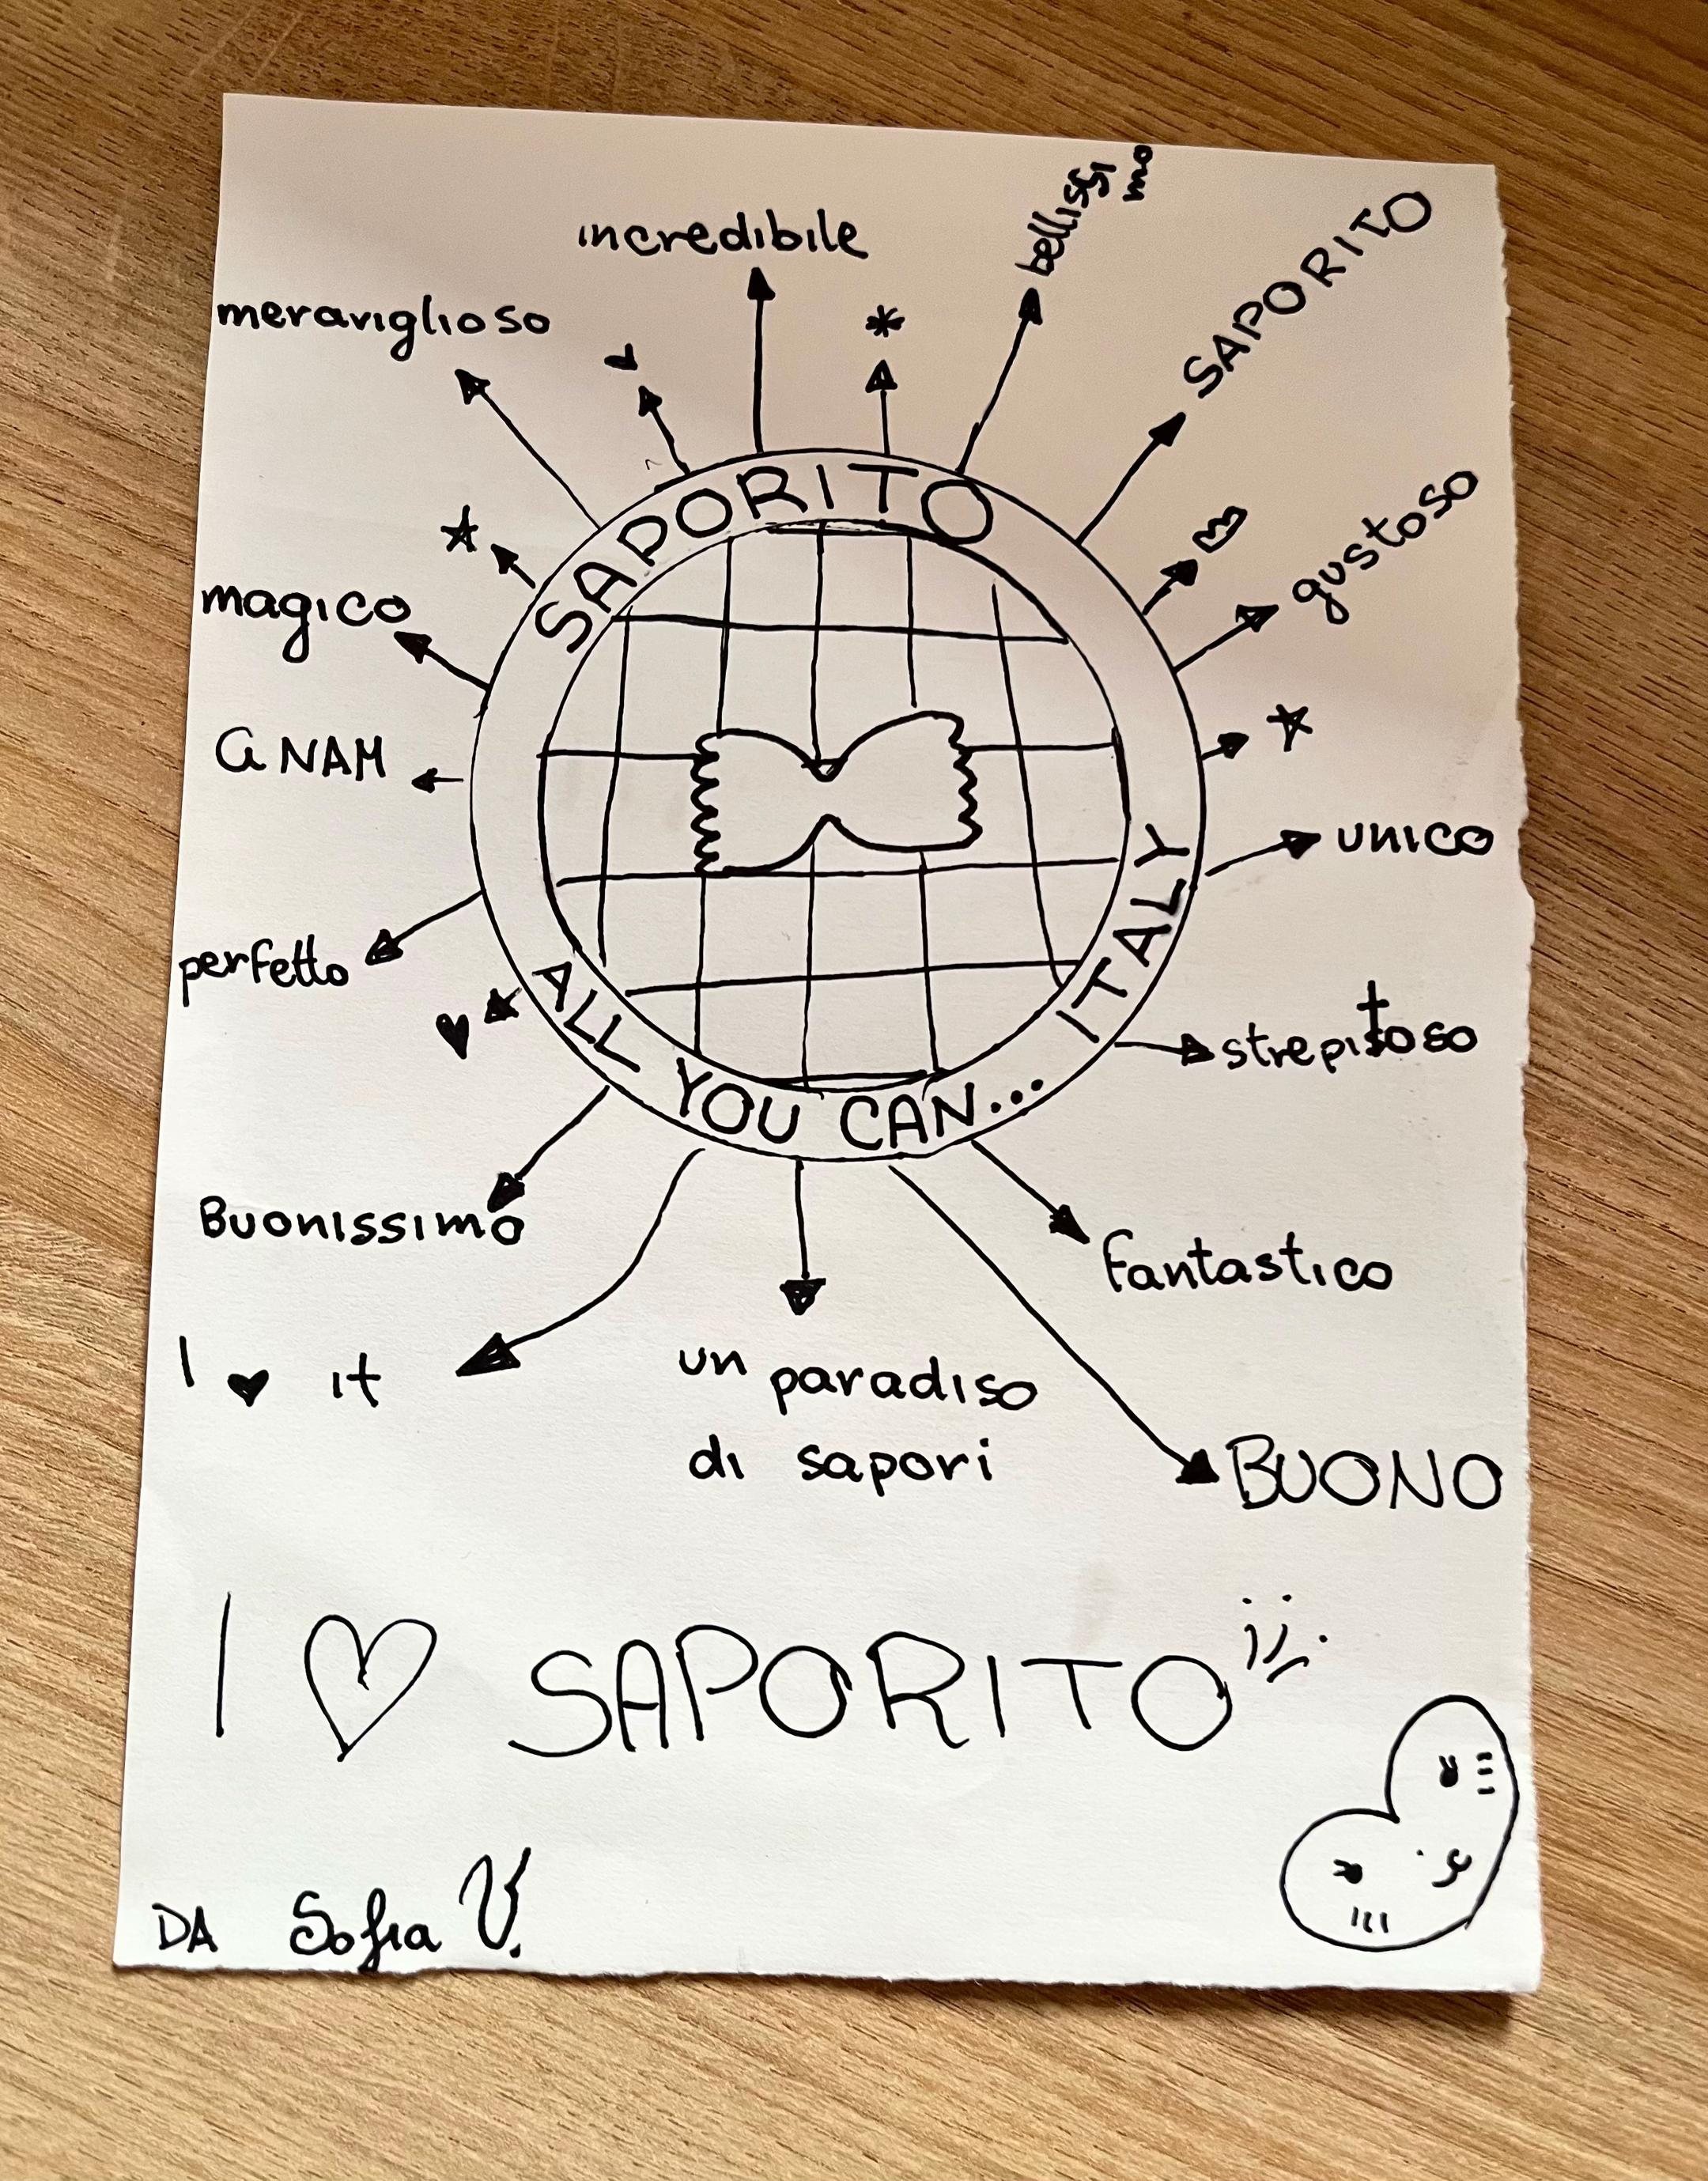 incredibile
bellissimo
SAPORITO
meraviglioso
gustoso
magico
NAM
unico
perfetto
strepitoso
SAPORITO
ALL YOU CAN... ITALY
Buonissimo
fantastico
I ♥ it
un paradiso
di sapori
BUONO
I ♡ SAPORITO
DA Sofia V.